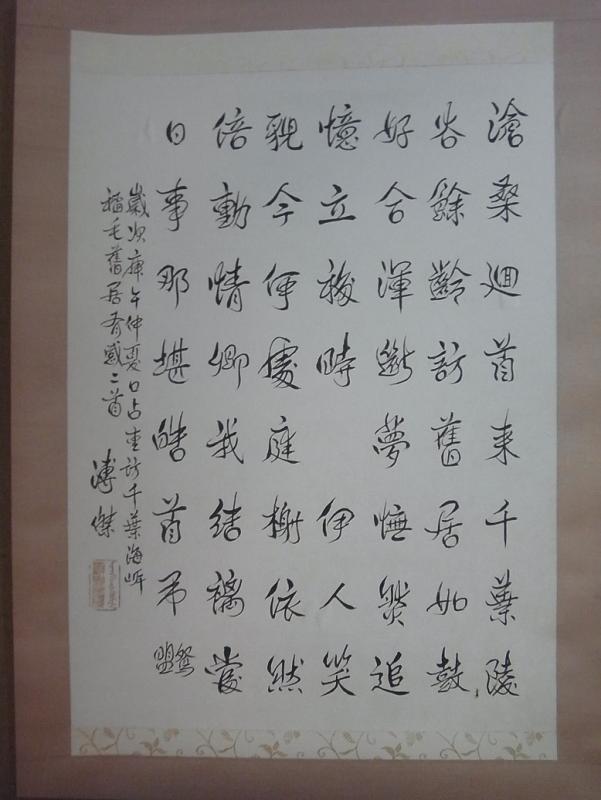 滄桑廻首来千葉陵
谷餘齡訪舊居如鼓
好合渾斷夢憮然追
憶立移時 伊人笑
今何處庭榭依然
倍動情卿我結褵嘗
日事那堪皓首弔鴛盟
歲次庚午仲夏口占重訪千葉海岸
稻毛舊居有感二首
溥傑